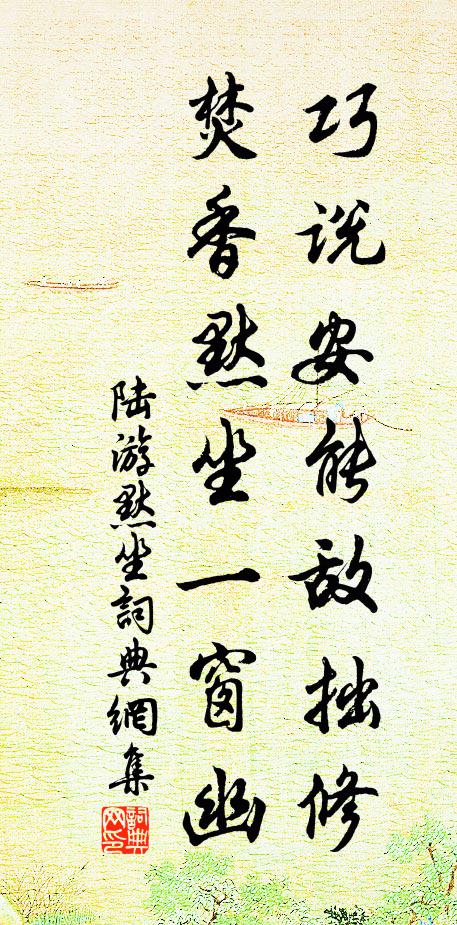 巧说安能敌拙修
焚香默坐一窗幽
陆游默坐詞典網集
詞典网印